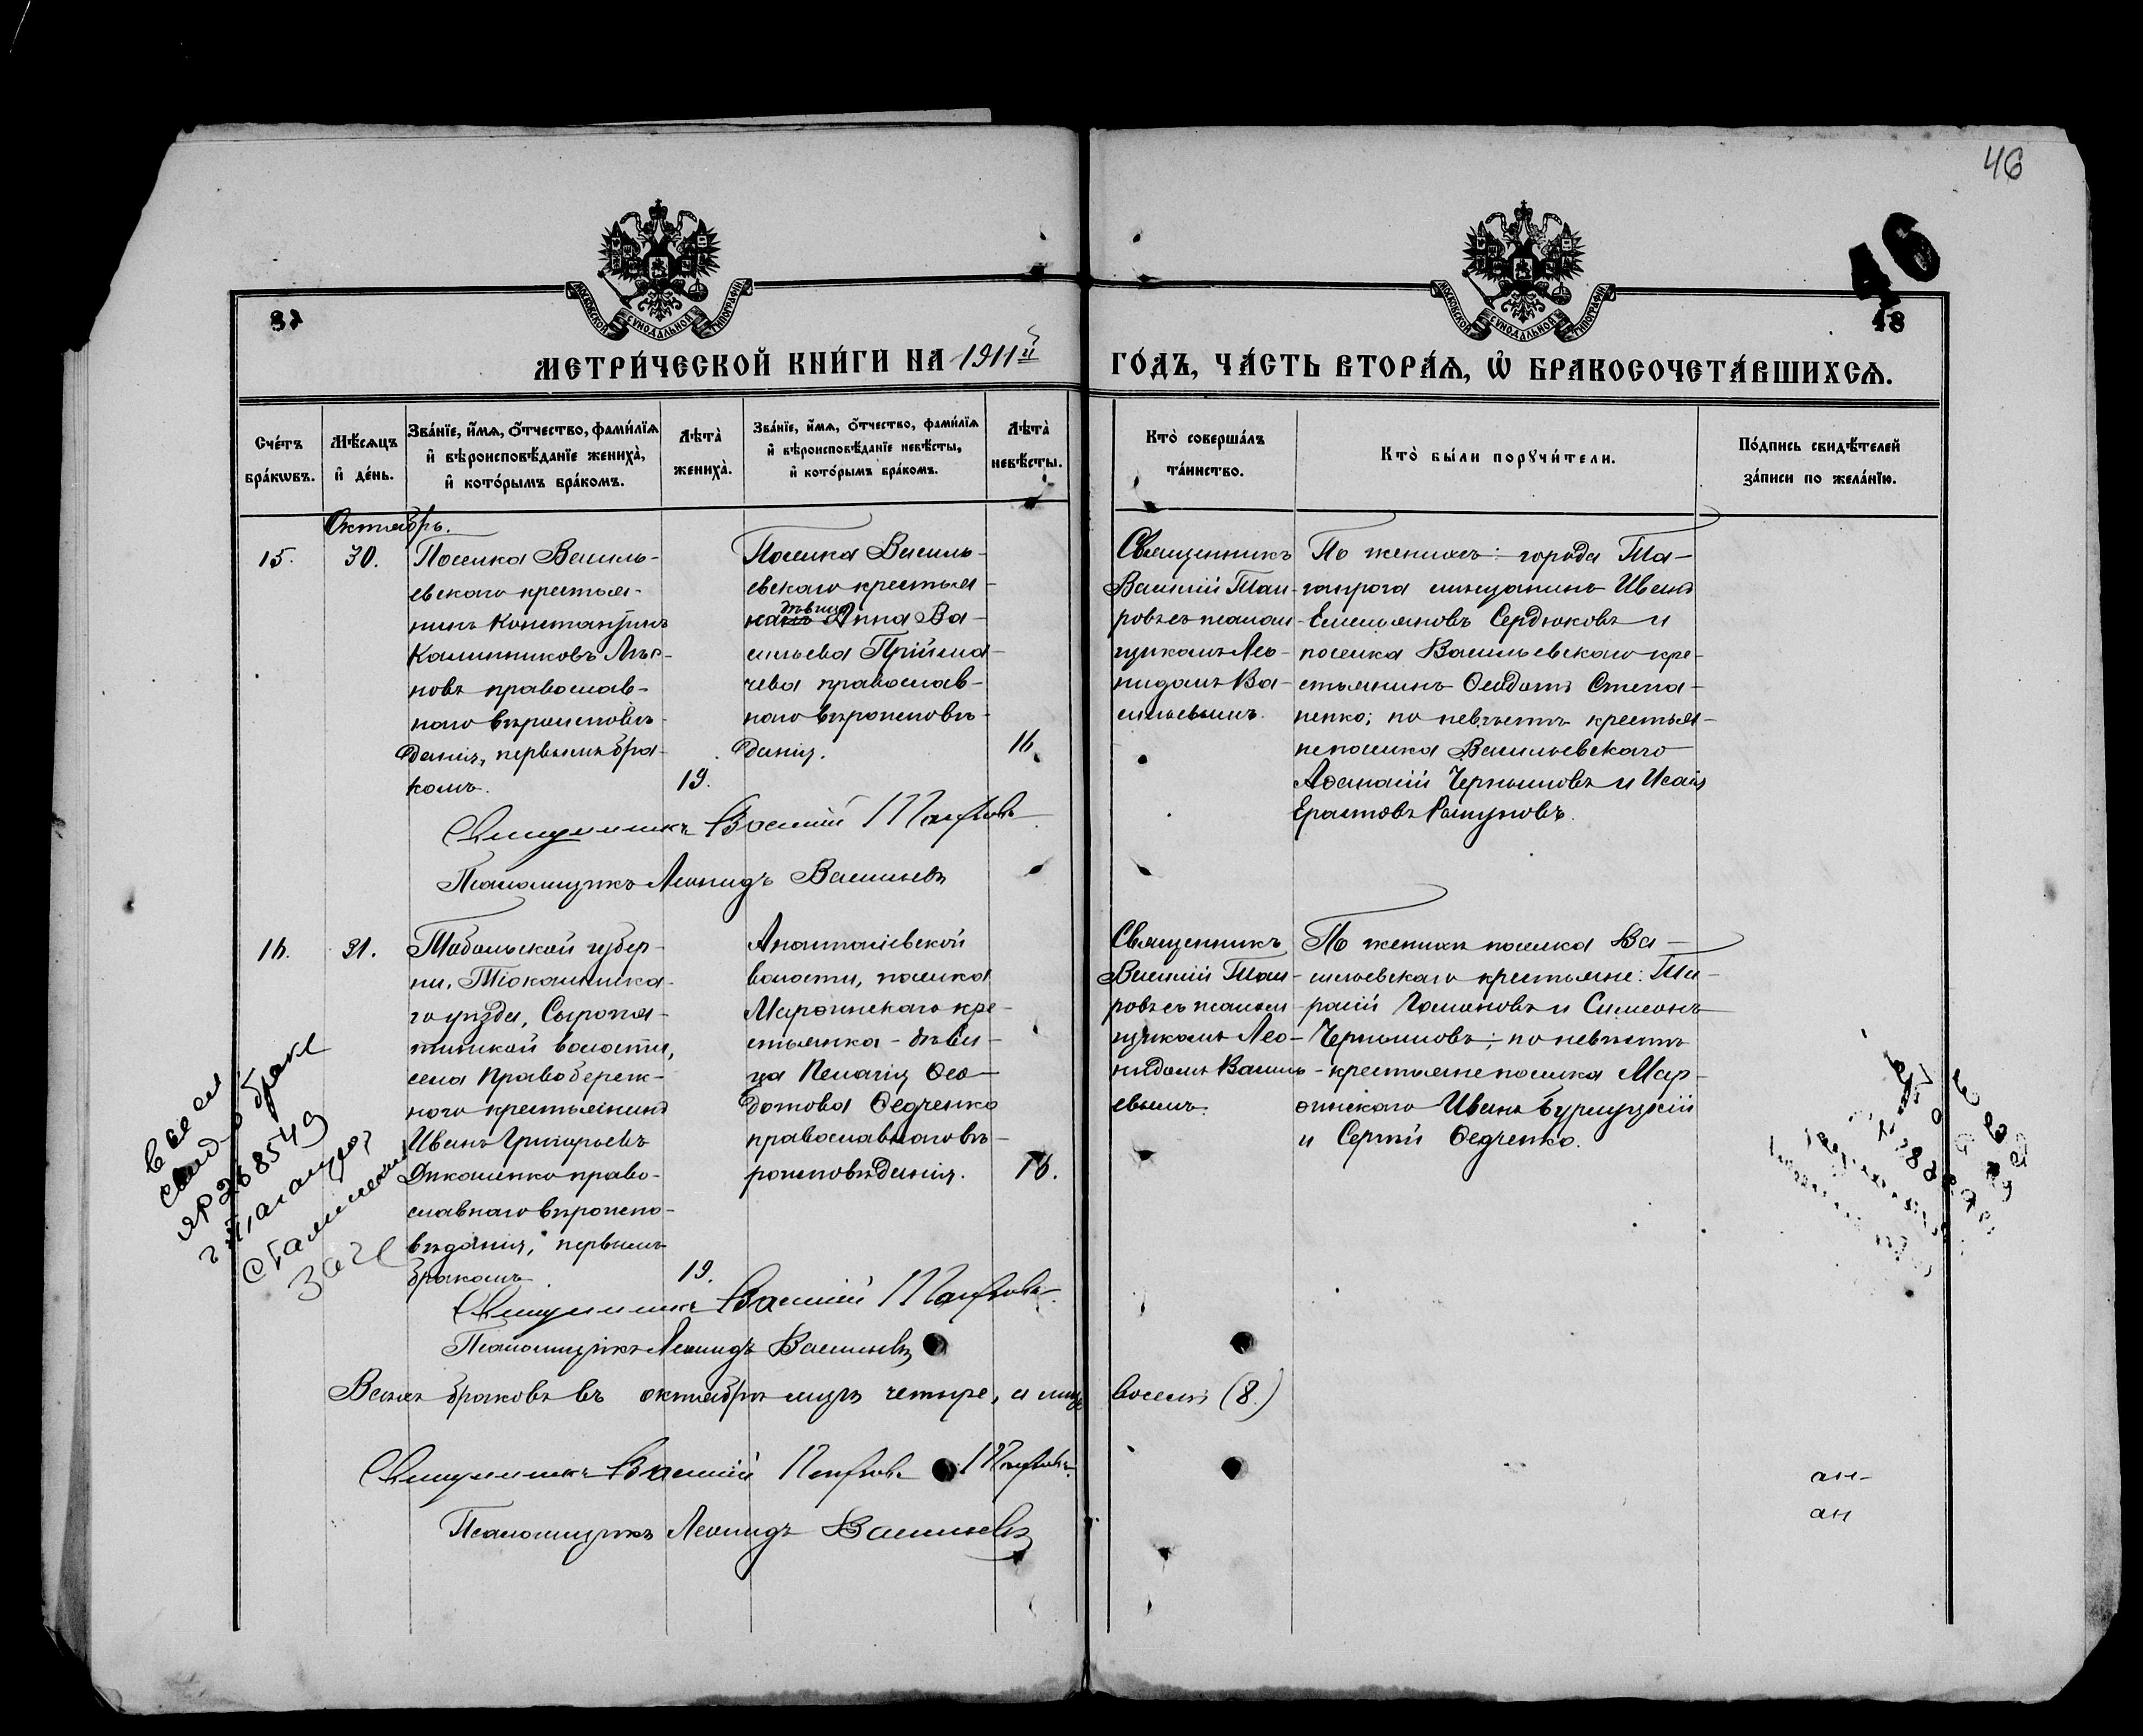 46
46
37
18
МОСКОВСКОЙ СѴНОДАЛЬНОЙ ТИПОГРАФІИ
МОСКОВСКОЙ СѴНОДАЛЬНОЙ ТИПОГРАФІИ
МЕТРИ́ЧЕСКОЙ КНИ́ГИ НА 1911й
ГО́ДЪ, ЧА́СТЬ ВТОРА́Ѧ, Ѡ҆ БРАКОСОЧЕТА́ВШИХСѦ.
Сче́тъ бра́кѡвъ.
Мѣ́сѧцъ и҆ де́нь.
Зва́нїе, и҆́мѧ, ѻ҆́тчество, фами́лїѧ и҆ вѣроисповѣ́данїе жениха̀, и҆ кото́рымъ бра́комъ.
Лѣта̀ жениха̀.
Зва́нїе, и҆́мѧ, ѻ҆́тчество, фами́лїѧ и҆ вѣроисповѣ́данїе невѣ́сты, и҆ кото́рымъ бра́комъ.
Лѣта̀ невѣ́сты.
Кто̀ соверша́лъ та́инство.
Кто̀ бы́ли порꙋчи́тели.
По́дпись свидѣ́телей за́писи по жела́нїю.
Октябрь.
15.
30.
Поселка Василь-
евскаго крестья-
нинъ Константинъ
Калинниковъ
новъ православ-
наго вѣроисповѣ-
данія, первымъ бра-
комъ.
19.
Поселка Василь-
евскаго крестья-
дѣвица
Анна Ва-
сильева Прійма-
чева православ-
наго вѣроисповѣ-
данія.
16.
Священникъ
Василій
ровъ съ псалом-
щикомъ Лео-
нидомъ Ва-
сильевымъ.
По женихѣ: города Та-
ганрога мѣщанинъ Иванъ
Емельяновъ Сердюковъ и
поселка Васильевскаго кре-
стьянинъ Ѳеодотъ Степа-
ненко; по невѣстѣ крестья-
не поселка Васильевскаго
Аѳанасій Чернышовъ и Исаія
Ерастовъ
Священникъ Василій
Псаломщикъ Леонидъ Васильевъ
16.
31.
Тобольской губер-
ніи, Тюкалинска-
го уѣзда, Сыропя-
тинской волости,
села Правобереж-
наго крестьянинъ
Иванъ Григорьевъ
Дикаленко право-
славнаго вѣроиспо-
вѣданія, первымъ
бракомъ.
19.
Анастасіевской
волости, поселка
Марѳинскаго кре-
стьянка - дѣви-
ца Пелагія Ѳео-
дотова Ѳедченко
православнаго вѣ-
роисповѣданія.
16.
Священникъ
Василій
ровъ съ псалом-
щикомъ Лео-
нидомъ Василь-
евымъ.
По женихѣ поселка Ва-
сильевскаго крестьяне: Та-
расій Гамановъ и Симеонъ
Чернышовъ; по невѣстѣ
крестьяне поселка Мар-
ѳинскаго Иванъ Бурлуцкій
и Сергѣй Ѳедченко.
свид о браке
268549
г Таганрог
Загс
Священникъ Василій
Псаломщикъ Леонидъ Васильевъ
Всѣхъ браковъ въ октябрѣ мцѣ четыре, а лицъ восемь (8.)
Священникъ Василій
Псаломщикъ Леонидъ Васильевъ